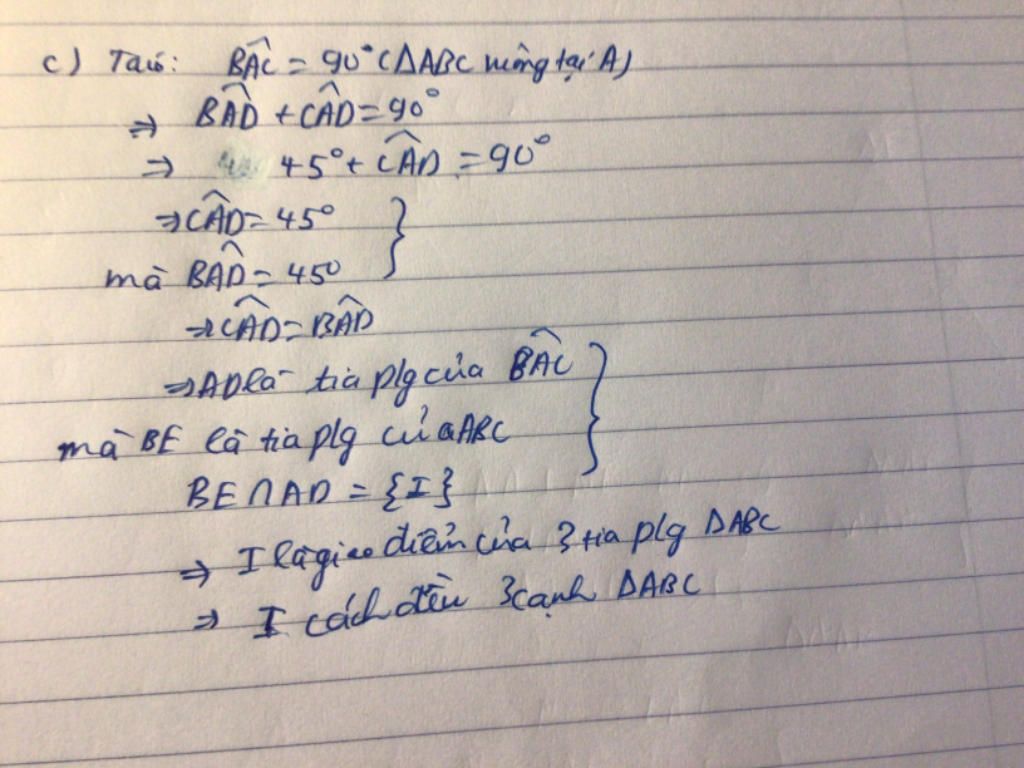 c) Ta có: BAC = 90° (ΔABC vuông tại A)
=> BAD + CAD = 90°
=> 45° + CAD = 90°
=> CAD = 45°
mà BAD = 45°
=> CAD = BAD
=> AD là tia plg của BAC
mà BE là tia plg của ABC
BE ∩ AD = {I}
=> I là giao điểm của 3 tia plg ΔABC
=> I cách đều 3 cạnh ΔABC